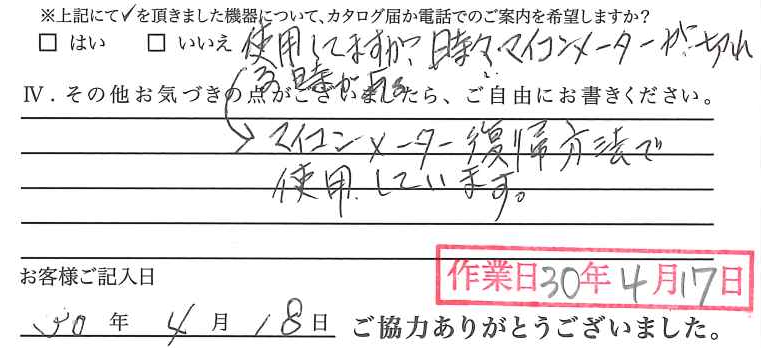 ※上記にて✓を頂きました機器について、カタログ届か電話でのご案内を希望しますか?
□ はい □ いいえ 使用してますが、時々マイコンメーターが切れ
る時が有る
Ⅳ．その他お気づきの点がございましたら、ご自由にお書きください。
マイコンメーター復帰方法で
使用しています。
作業日30年4月17日
お客様ご記入日
30年4月18日 ご協力ありがとうございました。